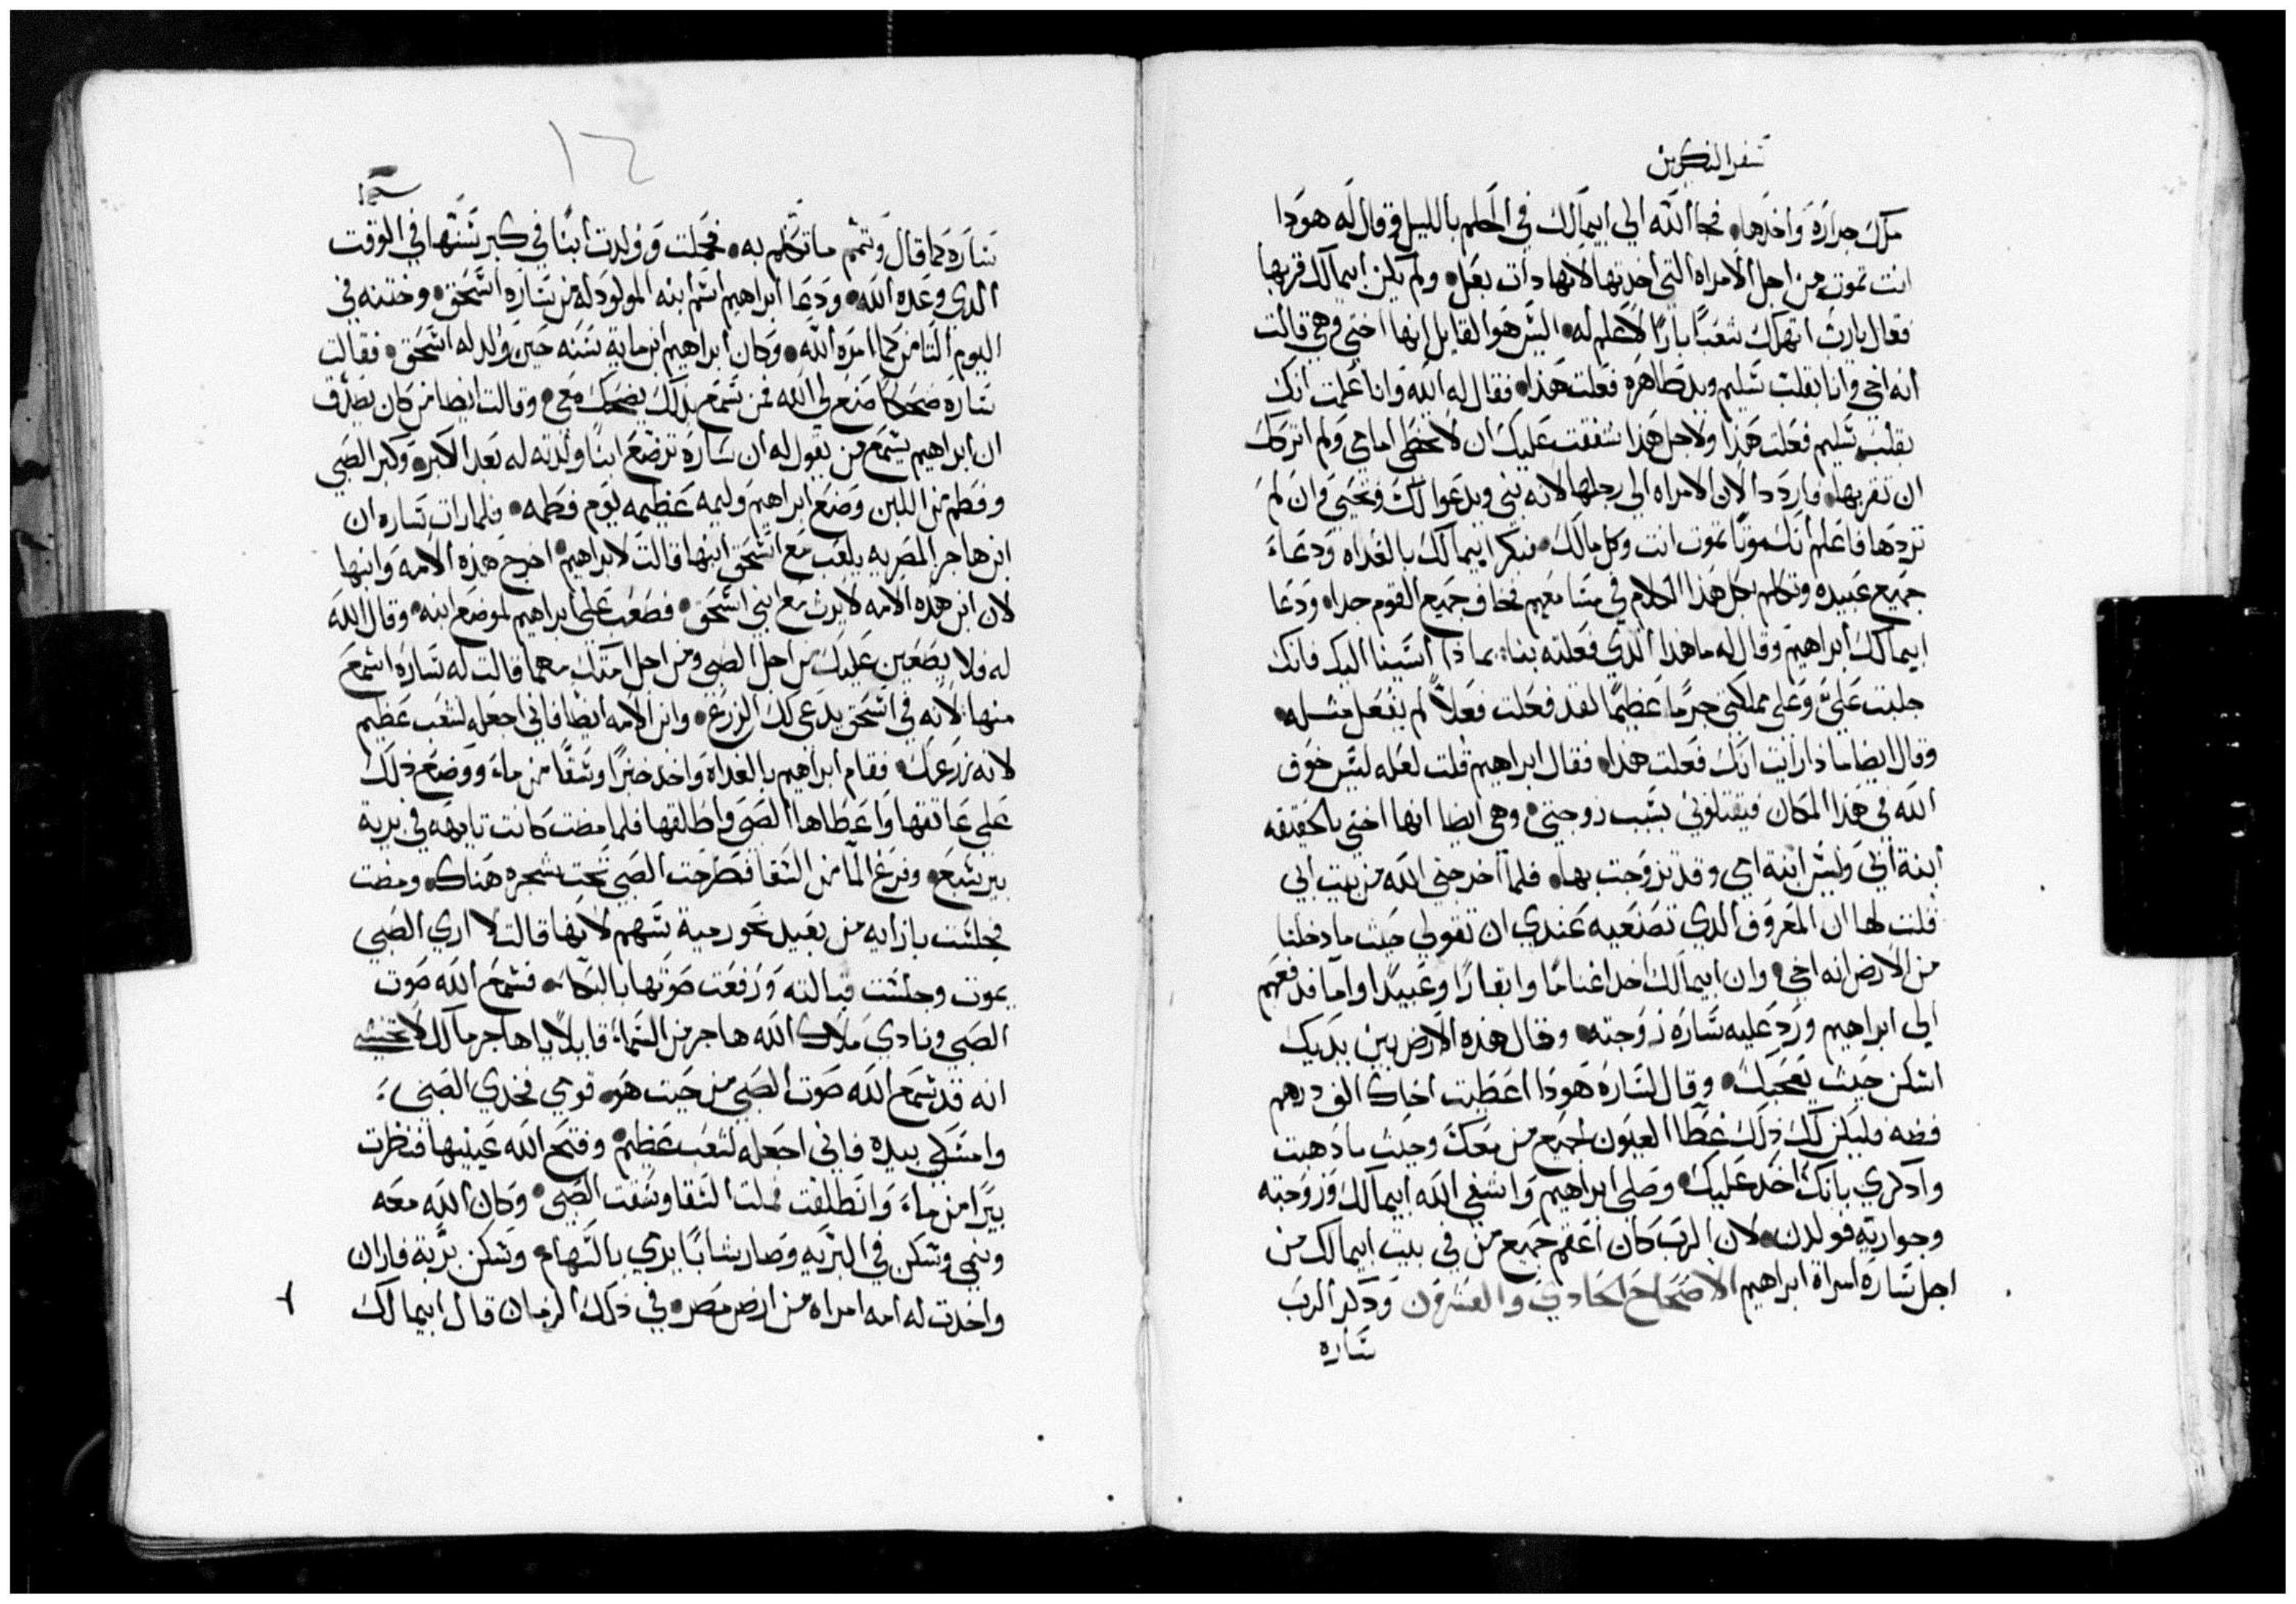 سفر التكوين
ملك جراره واخدها. فجا الله الي ابيمالك في الحلم بالليل وقال له هودا
انت تموت من اجل الامراه التي اخدتها لانها دات بعل. ولم يكن ابيمالك قربها
فقال يارب اتهلك شعبًا بارًا لا علم له. اليس هو القايل انها اختي وهي قالت
انه اخي وانا بقلب سليم ويد طاهره فعلت هذا. فقال له الله وانا علمت انك
بقلب سليم فعلت هذا ولاجل هذا شفقت عليك ان لا تخطي امامي ولم اتركك
ان تقربها. فاردد الان الامراه الي رجلها لانه نبي ويدعوا لك فتحيي وان لم
تردها فاعلم انك موتًا تموت انت وكل مالك. فبكر ابيمالك بالغداه ودعا
جميع عبيده وتكلم بكل هذا الكلام في مسامعهم فخاف جميع القوم جدا. ودعا
ابيمالك ابراهيم وقال له ما هذا الذي فعلته بنا. بماذا اسينا اليك فانك
جلبت علي وعلي مملكتي جرمًا عظيمًا لقد فعلت فعلاً لم يفعل مثله.
وقال ايضا ماذا رايت انك فعلت هذا. فقال ابراهيم قلت لعله ليس خوف
الله في هذا المكان فيقتلوني بسبب زوجتي. وهي ايضا انها اختي بالحقيقه
ابنة ابي وليس ابنة امي وقد تزوجت بها. فلما اخرجني الله من بيت ابي
قلت لها ان المعروف الدي تصنعيه عندي ان تقولي حيث ما دخلنا
من الارض انه اخي. وان ابيمالك اخد اغنامًا وابقارًا وعبيدًا واما فدفعهم
الي ابراهيم ورد عليه ساره زوجته. وقال هذه الارض بين يديك
اسكن حيث يعجبك. وقال لساره هودا اعطيت اخاك الف درهم
فضه فليكن لك ذلك غطا العيون لجميع من معك وحيث ما دهبت
وادكري بانك اخد عليك. وصلي ابراهيم واشفي الله ابيمالك وزوجته
وجواريه فولدن. لان الرب كان اعقم جميع من في بيت ابيمالك من
اجل ساره امراة ابراهيم الاصحاح الحادي والعشرون ودكر الرب
ساره
١٤
ساره كما قال وتمم ما تكلم به. فحملت وولدت ابنًا في كبر سنها في الوقت
الدي وعده الله. ودعا ابراهيم اسم ابنه المولود له من ساره اسحق. وختنه في
اليوم الثامن كما امره الله. وكان ابراهيم ابن ماية سنه حين ولد له اسحق. فقالت
ساره ضحكًا صنع لي الله فمن سمع بذلك يضحك معي. وقالت ايضا من كان يصدق
ان ابراهيم يسمع من يقول له ان ساره ترضع ابنًا ولدته له بعد الكبر. وكبر الصبي
وفطم من اللبن وصنع ابراهيم وليمه عظيمه يوم فطمه. فلما رات ساره ان
ابن هاجر المصريه يلعب مع اسحق ابنها قالت لابراهيم. اخرج هذه الامه وابنها
لان ابن هده الامه لا يرث مع ابني اسحق. فصعب علي ابراهيم لموضع ابنه. وقال الله
له فلا يصعبن عليك من اجل الصبي ومن اجل امتك مهما قالت له ساره اسمع
منها لانه في اسحق يدعي لك الزرع. وابن الامه ايضا فاني اجعله لشعب عظيم
لانه زرعك. فقام ابراهيم بالغداه واخد خبزًا وسقًا من ماء ووضع ذلك
علي عاتقها واعطاها الصبي واطلقها فلما مضت كانت تايهه في برية
بير شبع. وفرغ الما من السقا فطرحت الصبي تحت شجره هناك. ومضت
فجلست بازايه من بعيد نحو رمية سهم لانها قالت لا اري الصبي
يموت وجلست قبالته ورفعت صوتها بالبكا. فسمع الله صوت
الصبي ونادي ملاك الله هاجر من السما قايلاً يا هاجر مالك لا تخشي
انه قد سمع الله صوت الصبي من حيث هو. قومي فخدي الصبي
وامسكي بيده فاني اجعله لشعب عظيم. وفتح الله عينيها فنظرت
بيرًا من ماء وانطلقت فملت السقا وسقت الصبي. وكان الله معه
ونمي وسكن في البريه وصار شابًا يرمي بالسهام. وسكن برية فاران
واخدت له امه امراه من ارض مصر. في ذلك الزمان قال ابيمالك